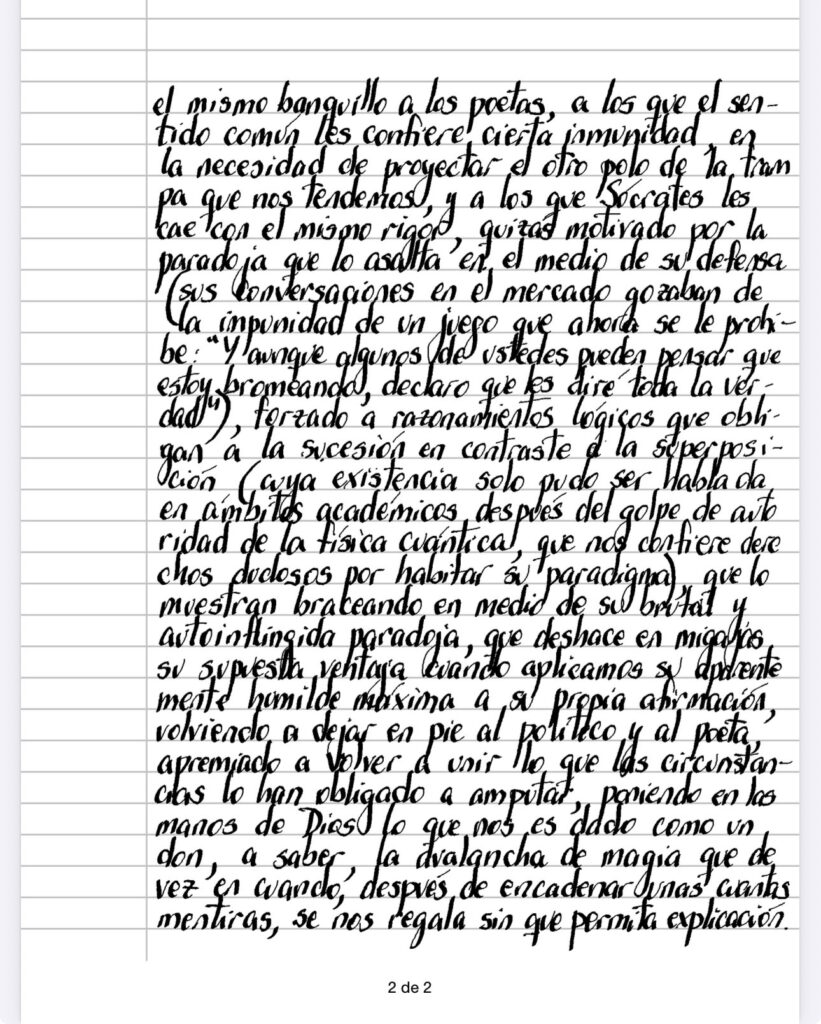 el mismo banquillo a los poetas, a los que el sen-
tido común les confiere cierta inmunidad, en
la necesidad de proyectar el otro polo de la tram
pa que nos tendemos, y a los que Sócrates les
cae con el mismo rigor, quizás motivado por la
paradoja que lo asalta en el medio de su defensa
(sus conversaciones en el mercado gozaban de
la impunidad de un juego que ahora se le prohí-
be: "Y aunque algunos de ustedes pueden pensar que
estoy bromeando, declaro que les diré toda la ver-
dad"), forzado a razonamientos lógicos que obli-
gan a la sucesión en contraste a la superposi-
ción (cuya existencia solo pudo ser hablada
en ámbitos académicos después del golpe de auto
ridad de la física cuántica, que nos confiere dere
chos dudosos por habitar su paradigma), que lo
muestran braceando en medio de su brutal y
autoinflingida paradoja, que deshace en migajas
su supuesta ventaja cuando aplicamos su aparente
mente humilde máxima a su propia afirmación,
volviendo a dejar en pie al político y al poeta,
apremiado a volver a unir lo que las circunstan-
cias lo han obligado a amputar, poniendo en las
manos de Dios lo que nos es dado como un
don, a saber, la avalancha de magia que de
vez en cuando, después de encadenar unas cuantas
mentiras, se nos regala sin que permita explicación.
2 de 2